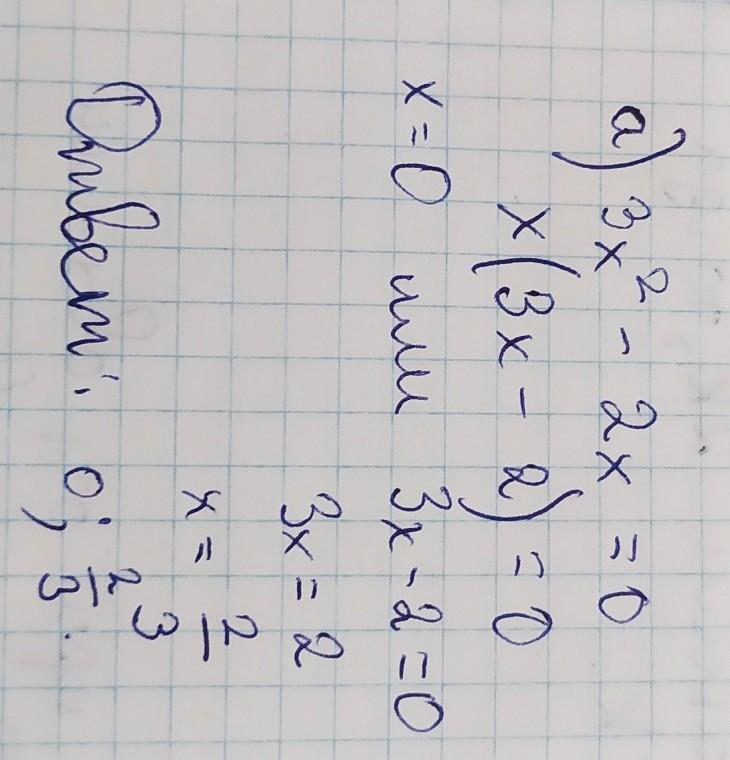 а) 3x² - 2x = 0
x(3x - 2) = 0
x = 0 или 3x - 2 = 0
3x = 2
x = 2/3
Ответ: 0; 2/3.